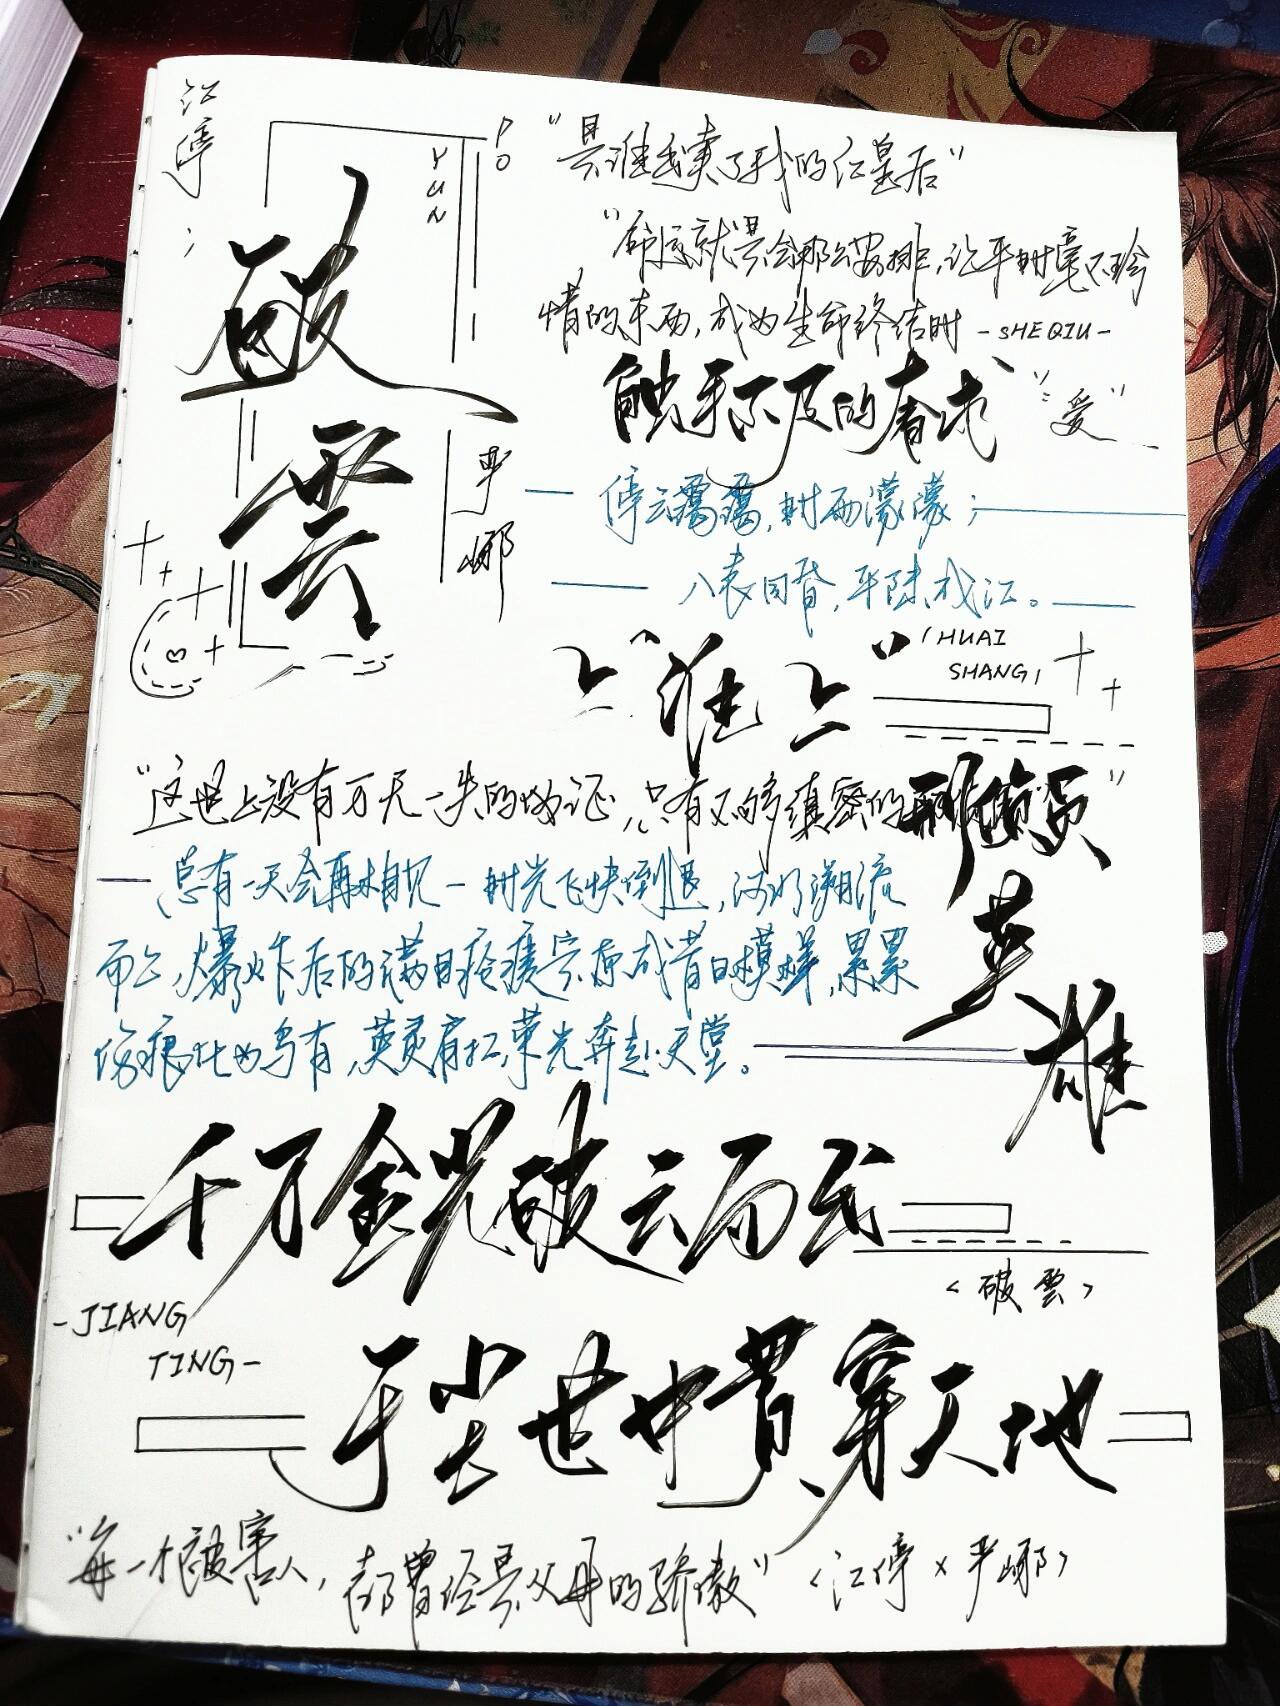 江停
PO
YUN
破雲
严峫
"是谁出卖了我的红皇后"
"命运就是会那么安排,让平时毫不珍
惜的东西,成为生命终结时 -SHE QIU-
触手不及的奢求"
"爱"
停云靄靄,时雨濛濛;
八表同昏,平陆成江。
"淮上"
HUAI
SHANG
"这世上没有万无一失的物证,只有不够缜密的刑侦员"
总有一天会再相见-时光飞快倒退,河水溯流
而上,爆炸后的满目疮痍,完原成昔日模样,累累
伤痕化为乌有,英灵肩扛荣光奔赴天堂。
英雄
千万金光破云而出
<破雲>
-JIANG
TING-
于尘世中贯穿天地
"每一个被害人,都曾经是父母的骄傲" <江停×严峫>